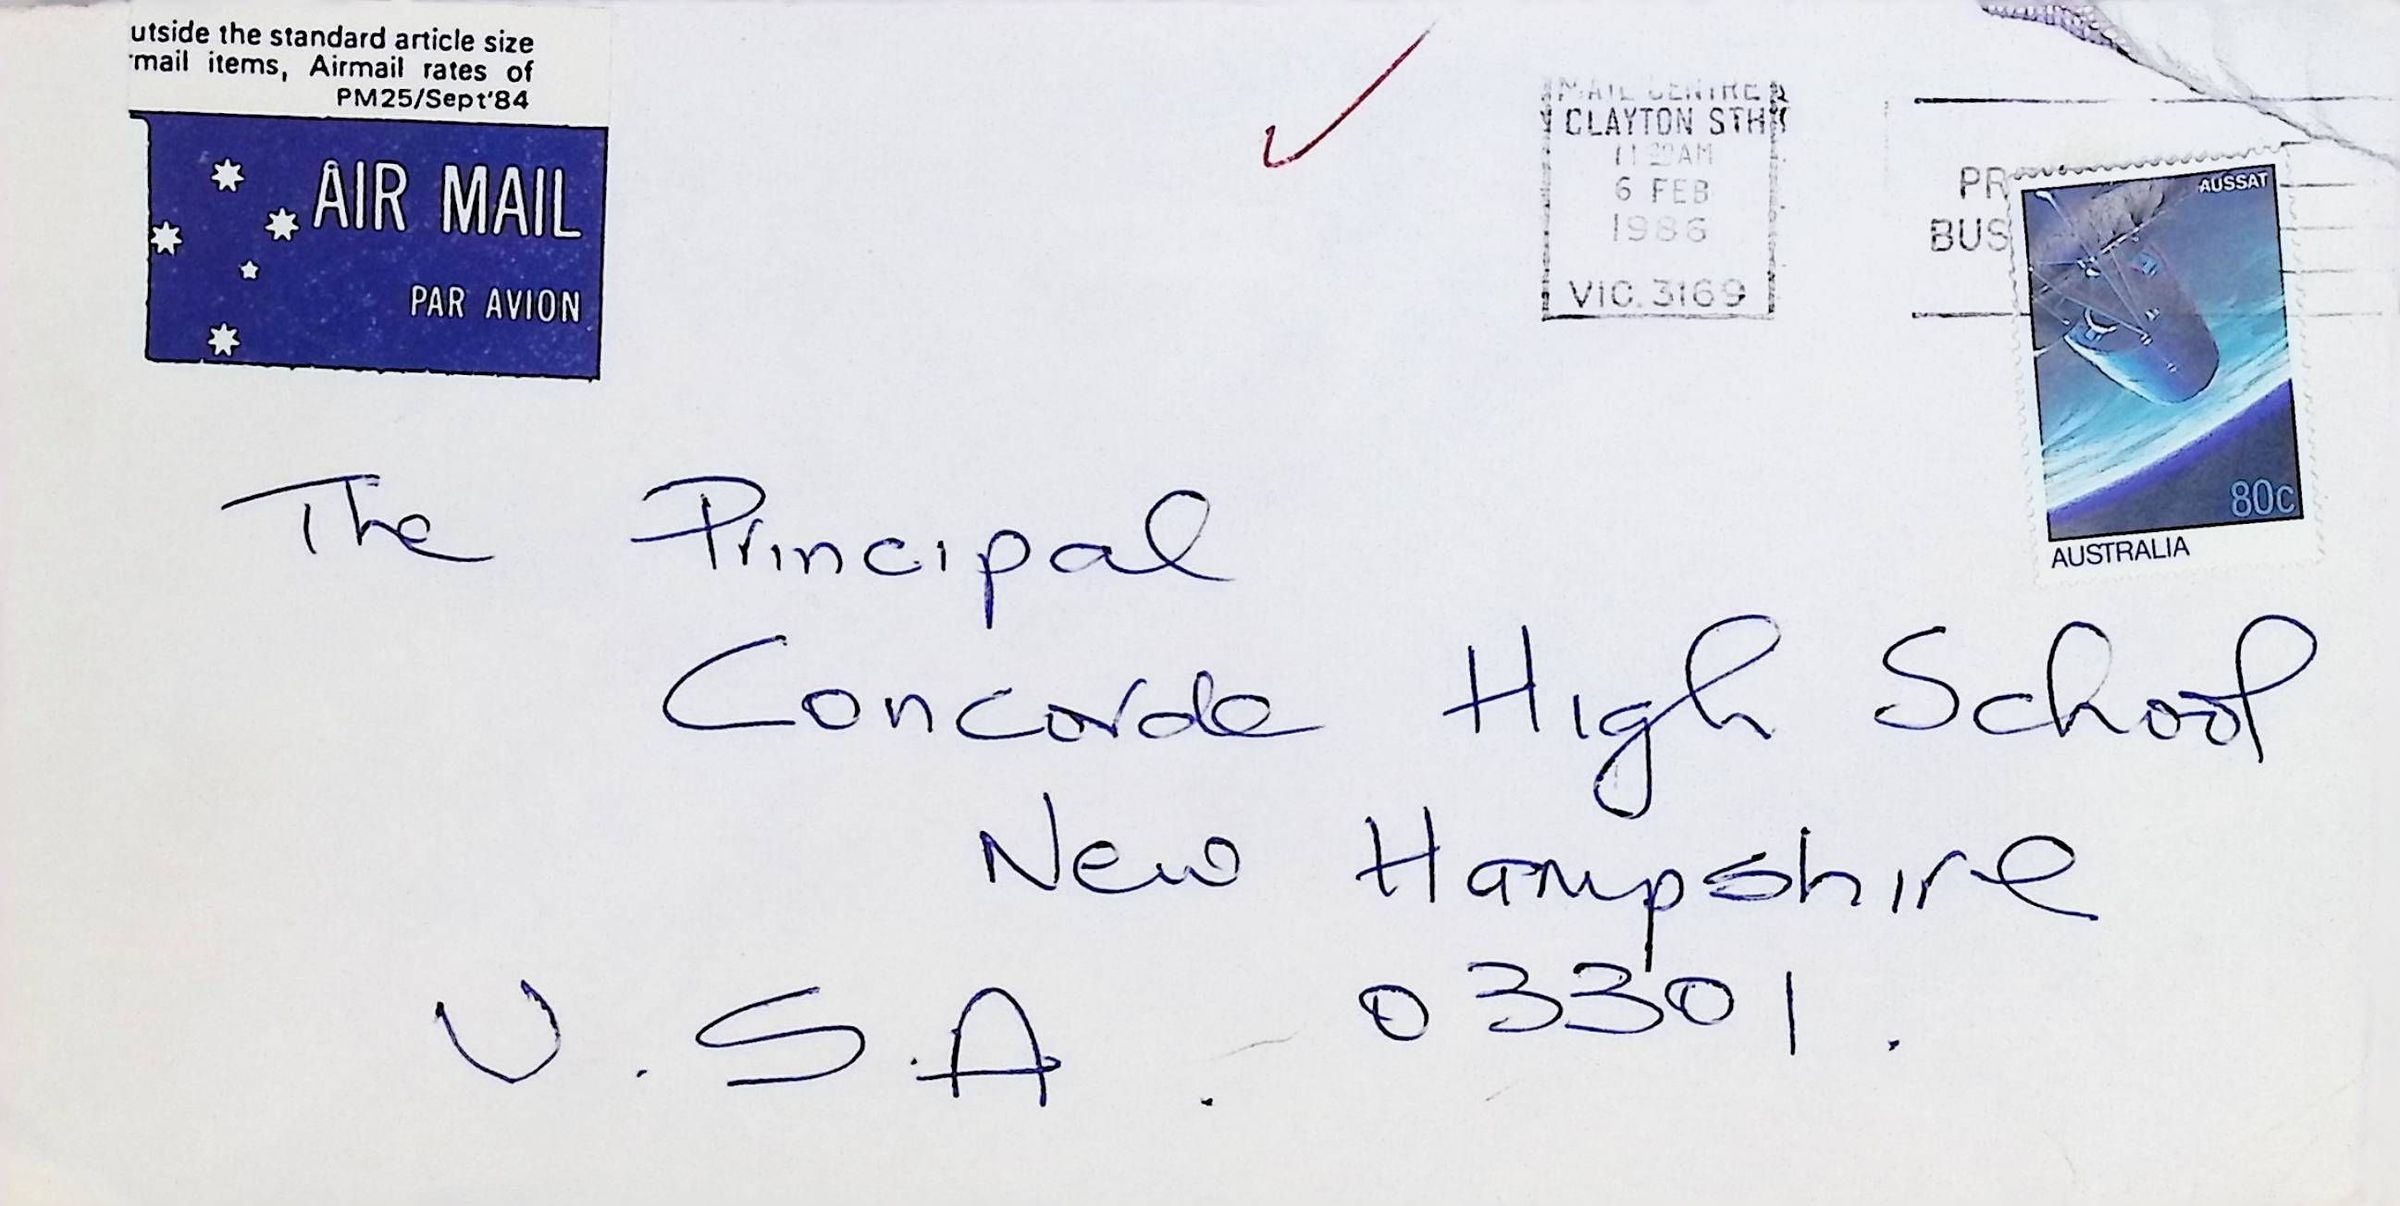 utside the standard article size
mail items, Airmail rates of
PM25/Sept'84
AIR MAIL
PAR AVION
MAIL CENTRE
CLAYTON STH
AM
6 FEB
1986
VIC. 3169
PR
BUS
AUSSAT
80c
AUSTRALIA
The Principal
Concorde High School
New Hampshire
U.S.A. 03301.